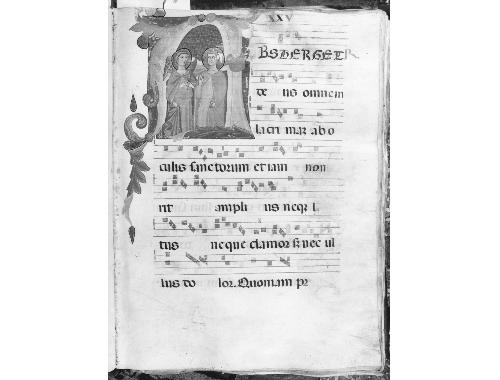 XXV
BSTERGET
de us omnem
lacrimam ab o
culis sanctorum et iam non
rit ampli us neq l
tus neque clamor s nec ul
lus do lor. Quoniam pr